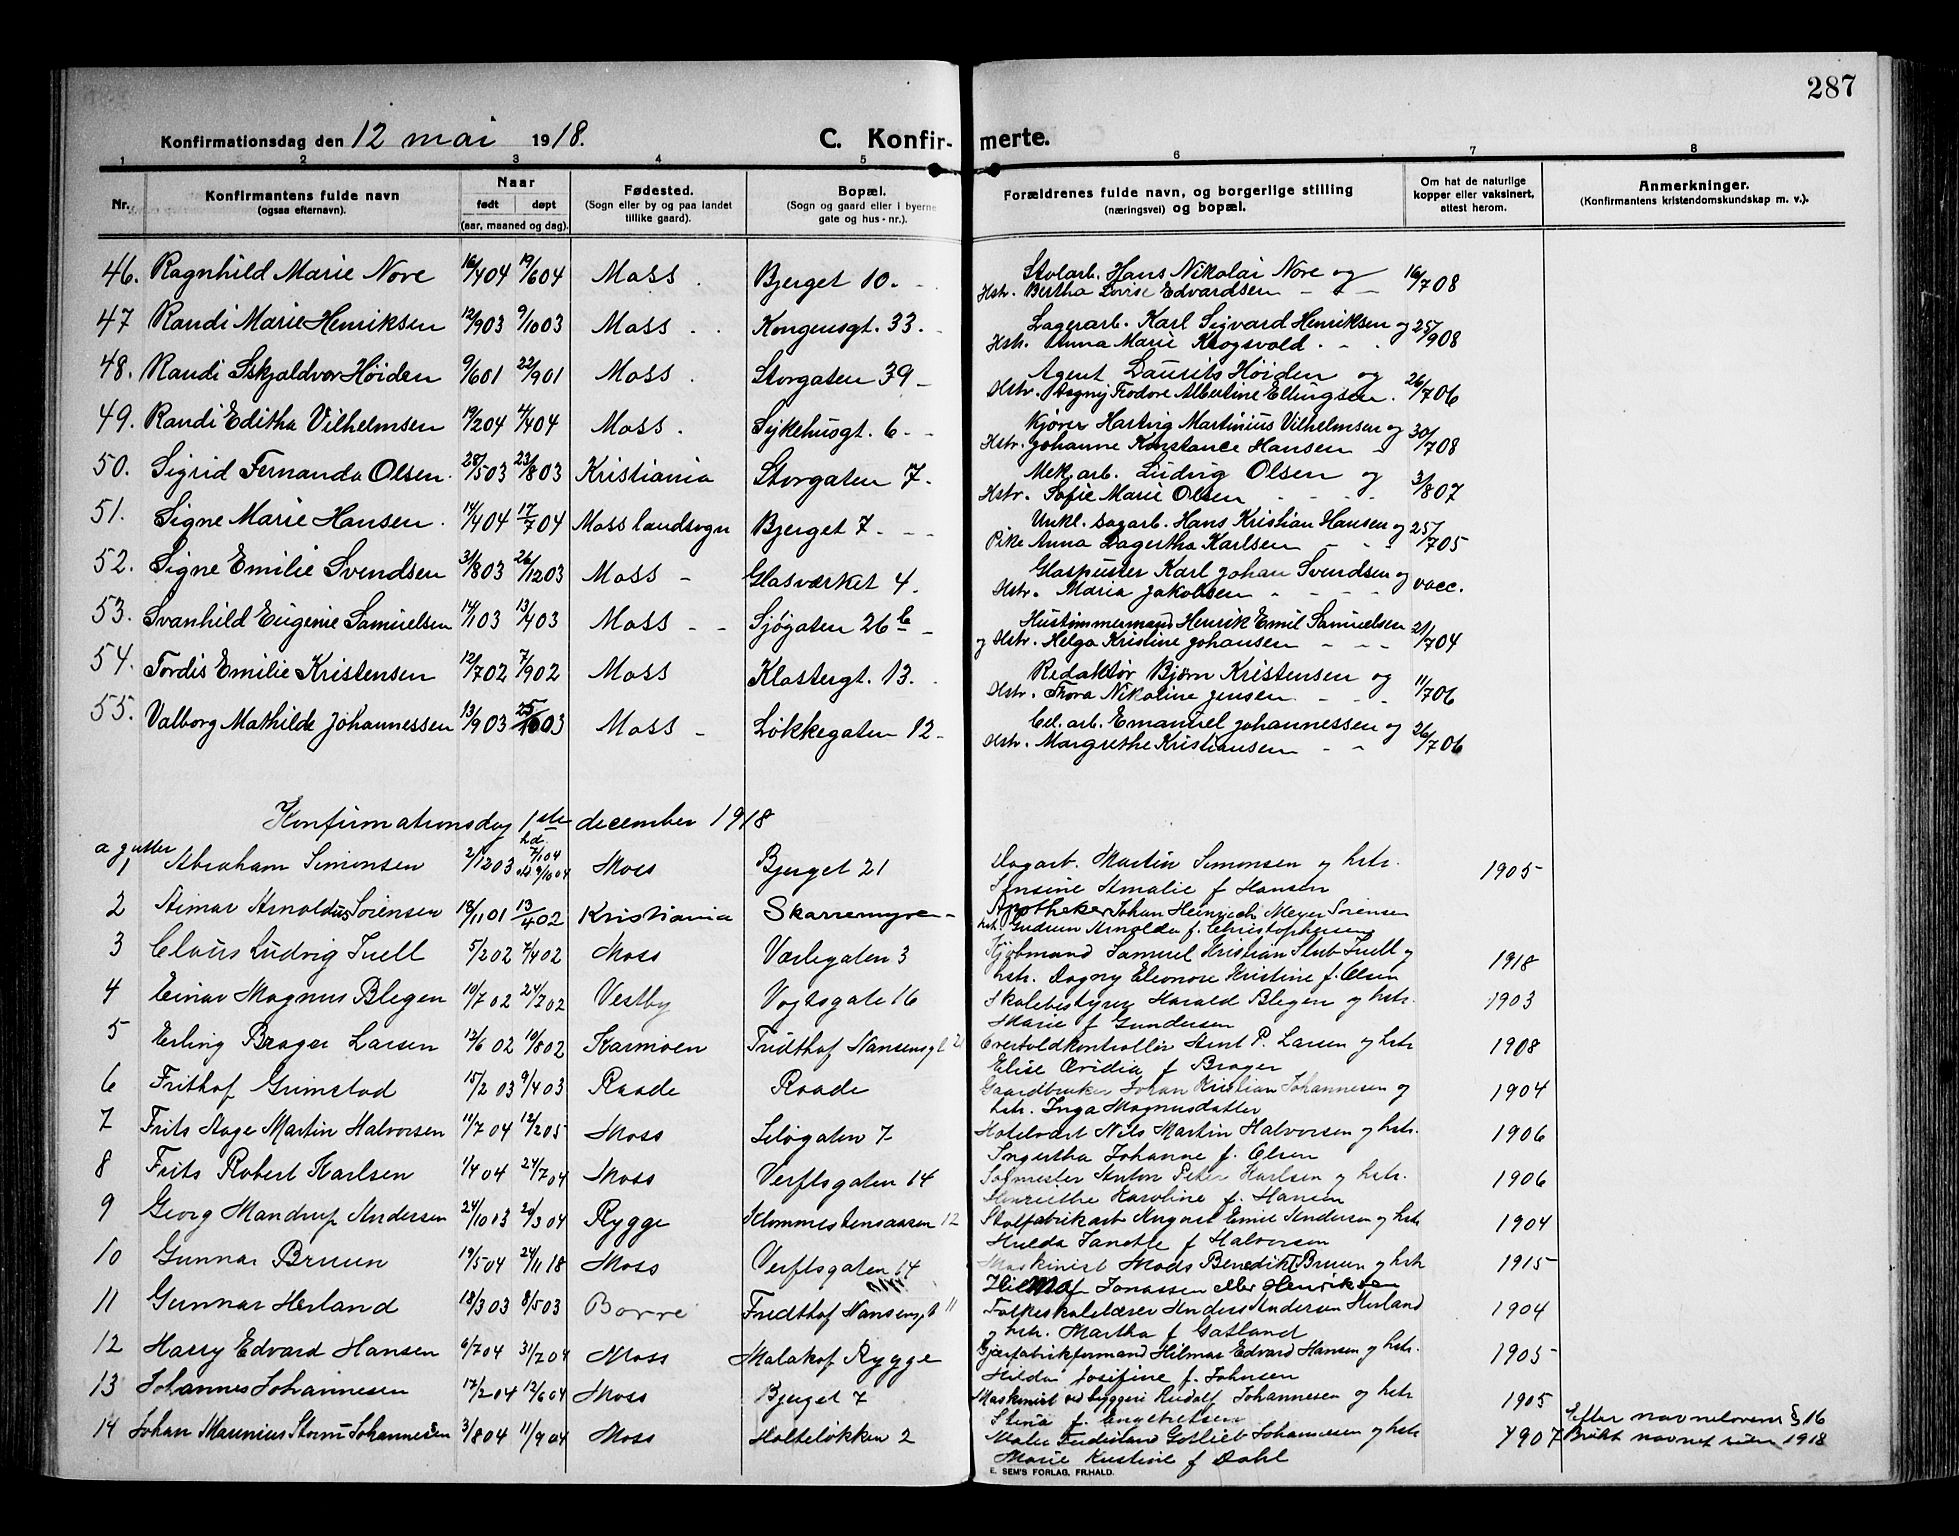 287
Konfirmationsdag den 12 mai 1918.
C. Konfirmerte.
1 2 3 4 5 6 7 8
Nr.
Konfirmantens fulde navn
(ogsaa efternavn).
Naar
født døpt
(aar, maaned og dag).
Fødested.
(Sogn eller by og paa landet
tillike gaard).
Bopæl.
(Sogn og gaard eller i byerne
gate og hus-nr.).
Forældrenes fulde navn, og borgerlige stilling
(næringsvei) og bopæl.
Om hat de naturlige
kopper eller vaksinert,
attest herom.
Anmerkninger.
(Konfirmantens kristendomskundskap m. v.).
46. Ragnhild Marie Nore 16/4 04 19/6 04 Moss Bjerget 10. Stolarb. Hans Nikolai Nore og
Hstr. Bertha Lovise Edvardsen 16/7 08
47 Randi Marie Henriksen 12/9 03 9/10 03 Moss Kongensgt. 33. Lagerarb. Karl Sigvard Henriksen og
Hstr. Anna Marie Krogsvold 25/9 08
48. Randi Skjoldvor Høiden 9/6 01 22/9 01 Moss Storgaten 39 Agent Laurits Høiden og
Hstr. Dagny Frodore Albertine Ellingsen 26/7 06
49. Randi Editha Vilhelmsen 19/2 04 4/4 04 Moss Sykehusgt. 6 Kjører Hartvig Martinius Vilhelmsen og
Hstr. Johanne Konstance Hansen 30/7 08
50. Sigrid Fernanda Olsen 28/5 03 23/8 03 Kristiania Storgaten 7. Mek. arb. Ludvig Olsen og
Hstr. Sofie Marie Olsen 3/8 07
51. Signe Marie Hansen 14/4 04 17/7 04 Moss landsogn Bjerget 7 Unkl. Dagarb. Hans Kristian Hansen og
Pike Anna Dagertha Karlsen 25/7 05
52. Signe Emilie Svendsen 3/8 03 26/12 03 Moss Glasværket 4. Glaspuster Karl Johan Svendsen og
Hstr. Maria Jakobsen vacc.
53. Svanhild Eugenie Samuelsen 14/1 03 13/4 03 Moss Sjøgaten 26 b Hustømmermand Henrik Emil Samuelsen
og Hstr. Helga Kristine Johansen 21/7 04
54. Tordis Emilie Kristensen 12/7 02 7/9 02 Moss Klostergt. 13. Redaktør Bjørn Kristensen og
Hstr. Thora Nikoline Jensen 11/7 06
55. Valborg Mathilde Johannessen 13/9 03 25/10 03 Moss Løkkegaten 12 Cel. arb. Emanuel Johannessen og
Hstr. Margrethe Kristiansen 26/7 06
Konfirmationsdag 1ste december 1918
a gutter
1 Abraham Simonsen 2/12 03 hd. 7/1 04 9/10 04 Moss Bjerget 21 Dagarb. Martin Simonsen og hstr.
Jensine Amalie f Hansen 1905
2 Aimar Arnoldus Sørensen 18/11 01 13/4 02 Kristiania Skarremyren Apotheker Johan Heinrich Meyer Sørensen
hstr. Gudrun Arnolda f. Christophersen
3 Claus Ludvig Tuell 5/2 02 7/4 02 Moss Værlegaten 3 Kjøbmand Samuel Kristian Stub Tuell og
hstr. Dagny Eleonore Kristine f. Olsen 1918
4 Einar Magnus Blegen 10/7 02 24/7 02 Vestby Vogtsgate 16 Skolebestyrer Harald Blegen og hstr.
Marie f Gundersen 1903
5 Erling Brager Larsen 12/6 02 10/8 02 Karmøen Fridthof Nansensgt 21 Overtoldkontrollør Arnt P. Larsen og hstr
Elise Ovidia f Brager 1908
6 Frithof Grimstad 15/2 03 9/4 03 Raade Raade Gaardbruker Johan Kristian Johannesen og
hstr. Inga Magnusdatter 1904
7 Frits Aage Martin Halvorsen 11/7 04 12/2 05 Moss Seløgaten 7 Hotelvært Nils Martin Halvorsen og hstr.
Ingertha Johanne f. Olsen 1906
8 Frits Robert Karlsen 1/4 04 24/7 04 Moss Verftsgaten 14 Anton Peter Karlsen og hstr.
Henriethe Karoline f. Hansen 1906
9 Georg Mandrup Andersen 24/10 03 20/3 04 Rygge Klommestensaasen 12 Stolfabrikarb August Emil Andersen og hstr
Hulda Janette f Halvorsen 1904
10 Gunnar Bruun 19/5 04 24/11 18 Moss Verftsgaten 14 Maskinist Mads Benedikt Bruun og hstr
Hilma f Jonassen eller Henriksen 1915
11 Gunnar Herland 18/3 03 8/5 03 Borre Fridthof Nansensgt 11 Folkeskolelærer Anders Andersen Herland
og hstr. Martha f Gatland 1904
12 Harry Edvard Hansen 6/7 04 31/7 04 Moss Malakof Rygge Gjærfabrikformand Hilmar Edvard Hansen og hstr.
Hilda Josifine f. Johnsen 1905
13 Johannes Johannesen 17/2 04 12/6 04 Moss Bjerget 7 Maskinist ved bryggeri Rudolf Johannesen og hstr
Stina f. Engebretsen 1905
14 Johan Marinius Storm Johannesen 3/8 04 11/9 04 Moss Holteløkken 2 Maler Ferdinand Gotlieb Johannesen og hstr
Marie Kristine f Dahl 1907 Efter navneloven § 16
Brukt navnet siden 1918
E. SEM'S FORLAG, FR.HALD.